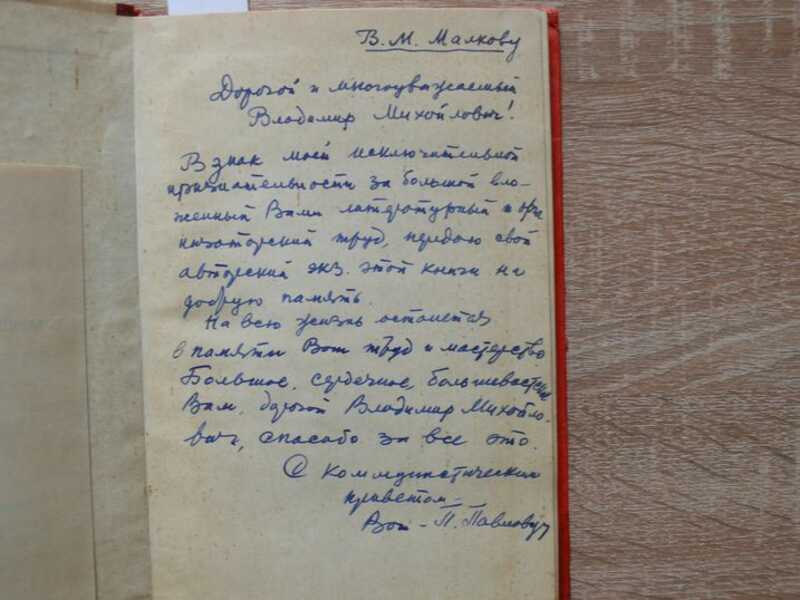 В. М. Малкову
Дорогой и многоуважаемый
Владимир Михайлович!
В знак моей исключительной
признательности за большой вло-
женный Вами литературный и орга
низаторский труд, передаю свой
авторский экз. этой книги на
добрую память.
На всю жизнь останется
в памяти Ваш труд и мастерство
Большое, сердечное, большевистское
Вам, дорогой Владимир Михайло-
вич, спасибо за все это.
С коммунистическим
приветом –
Ваш – П.